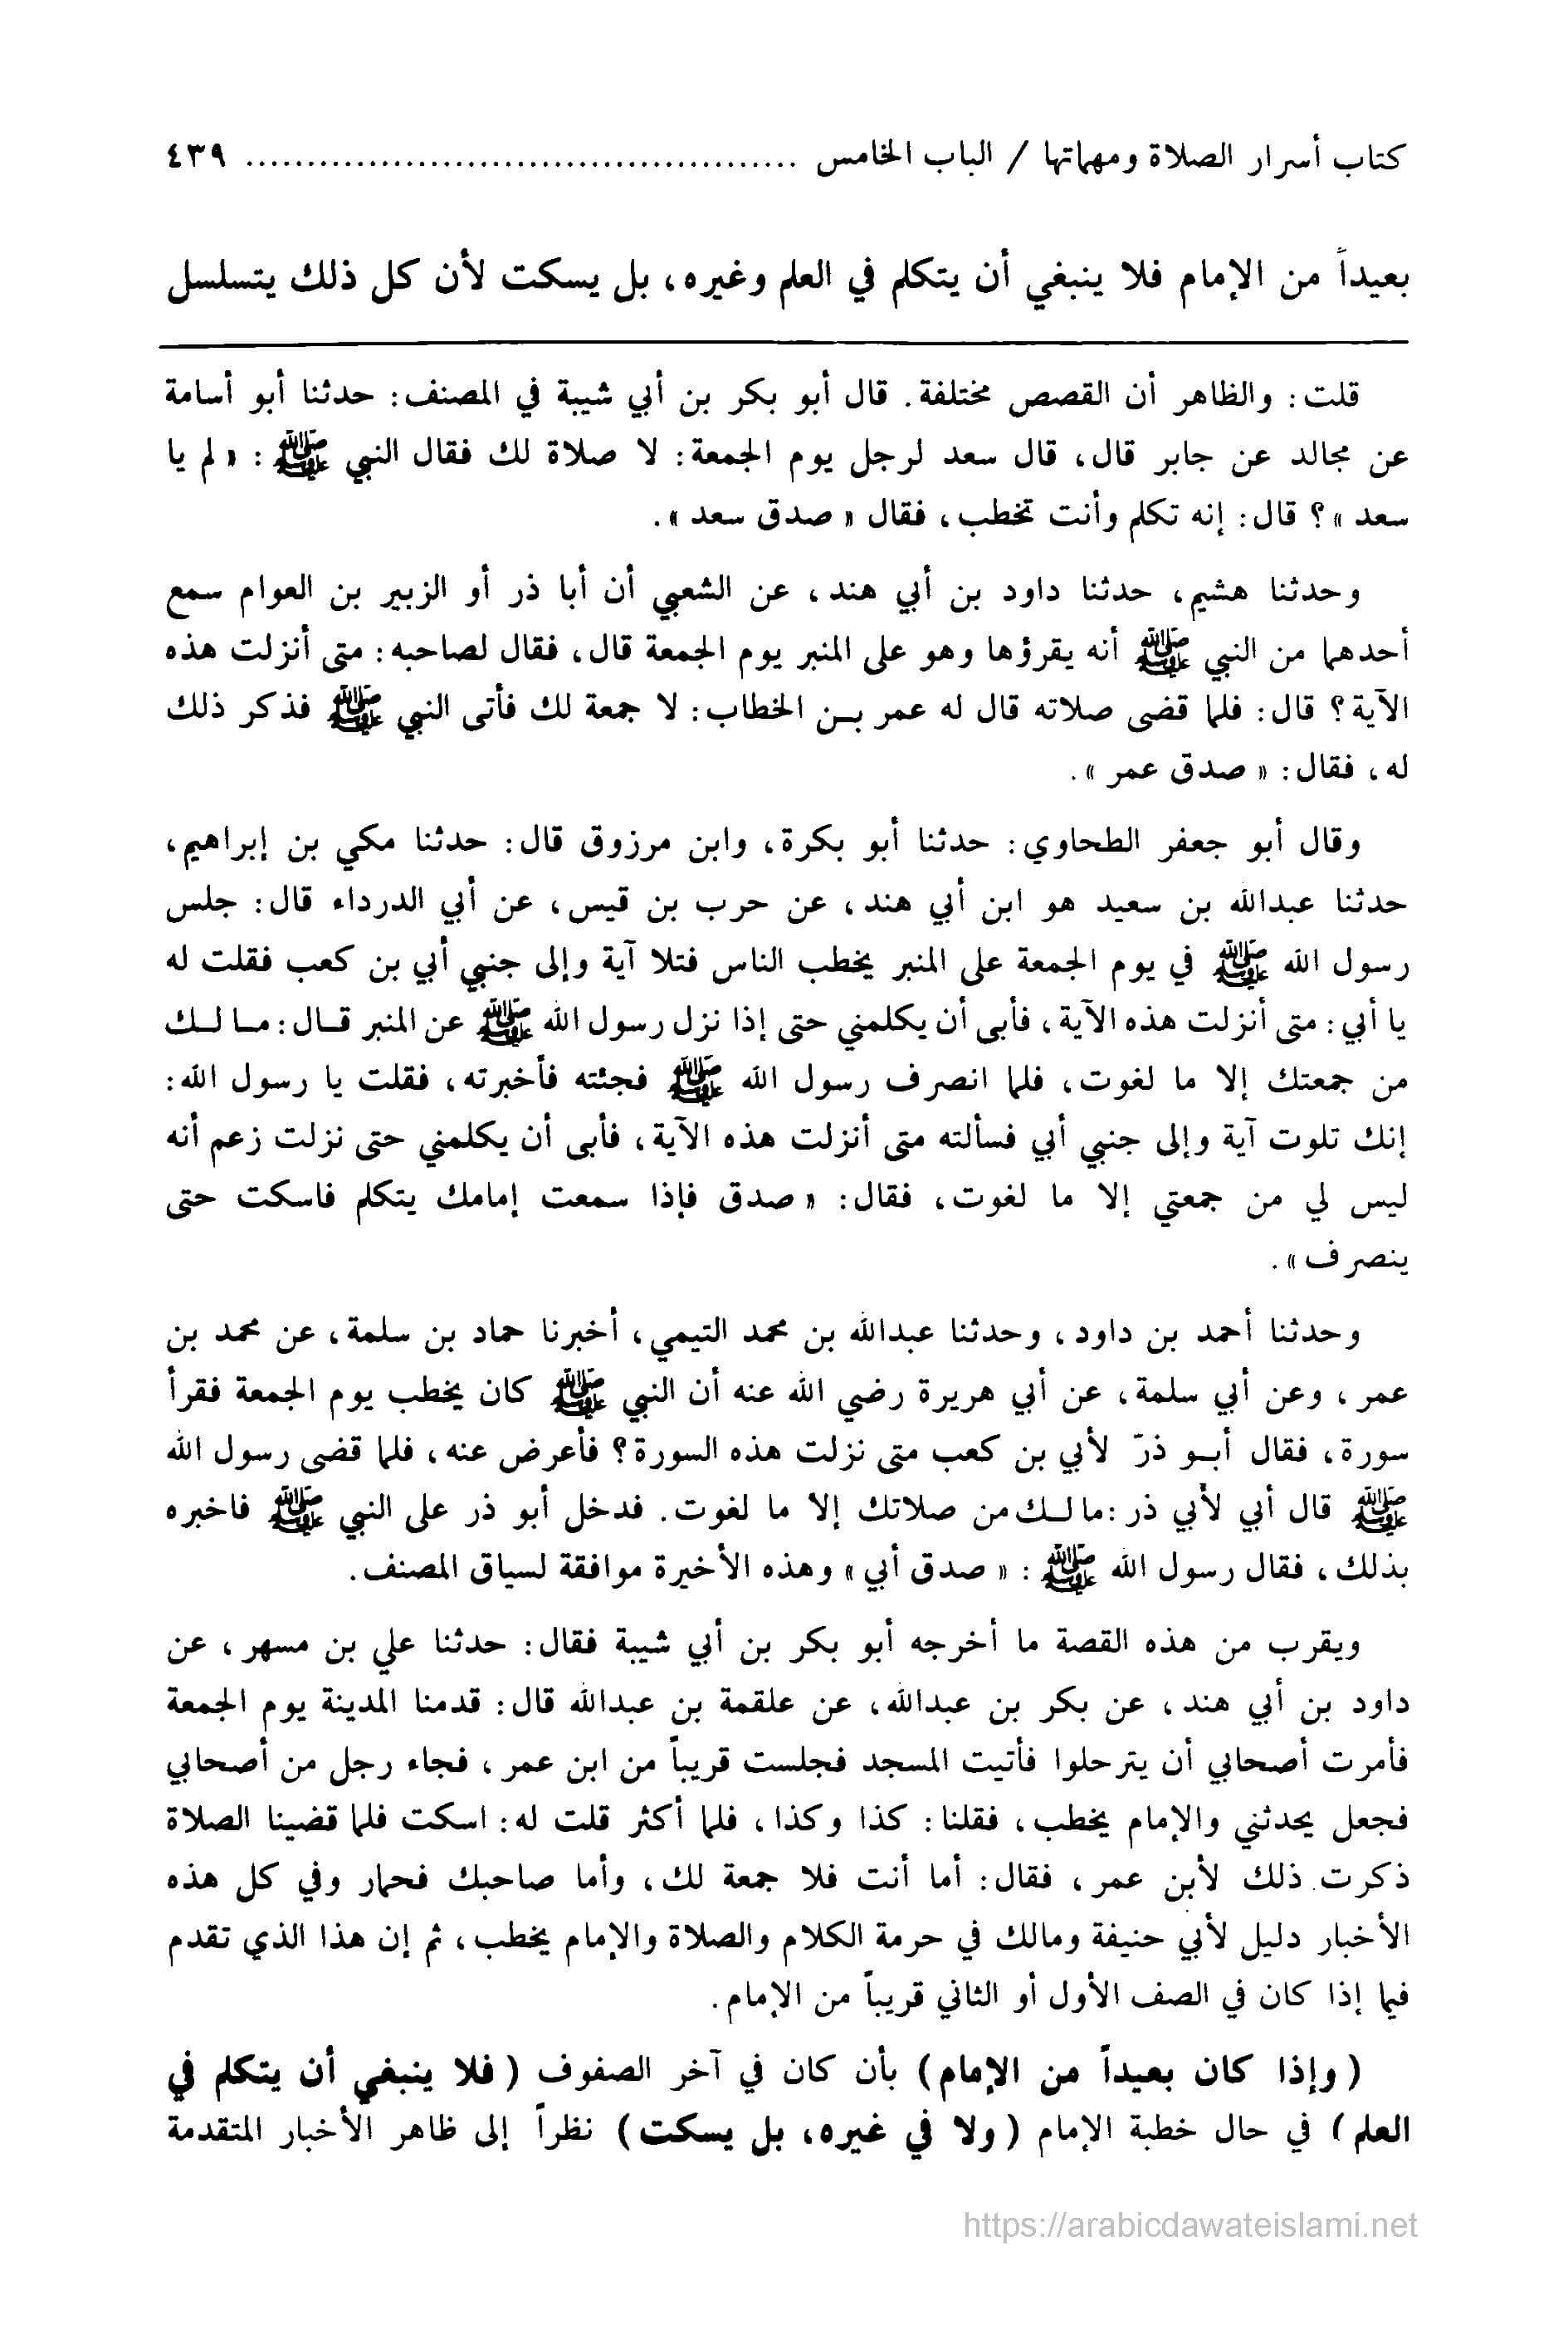 كتاب أسرار الصلاة ومهماتها / الباب الخامس ............................................. ٤٣٩
بعيداً من الإمام فلا ينبغي أن يتكلم في العلم وغيره، بل يسكت لأن كل ذلك يتسلسل
قلت: والظاهر أن القصص مختلفة. قال أبو بكر بن أبي شيبة في المصنف: حدثنا أبو أسامة
عن مجالد عن جابر قال، قال سعد لرجل يوم الجمعة: لا صلاة لك فقال النبي ﷺ : « لم يا
سعد »؟ قال: إنه تكلم وأنت تخطب، فقال « صدق سعد ».
وحدثنا هشيم، حدثنا داود بن أبي هند، عن الشعبي أن أبا ذر أو الزبير بن العوام سمع
أحدهما من النبي ﷺ أنه يقرؤها وهو على المنبر يوم الجمعة قال، فقال لصاحبه: متى أنزلت هذه
الآية؟ قال: فلما قضى صلاته قال له عمر بن الخطاب: لا جمعة لك فأتى النبي ﷺ فذكر ذلك
له، فقال: « صدق عمر ».
وقال أبو جعفر الطحاوي: حدثنا أبو بكرة، وابن مرزوق قال: حدثنا مكي بن إبراهيم،
حدثنا عبدالله بن سعيد هو ابن أبي هند، عن حرب بن قيس، عن أبي الدرداء قال: جلس
رسول الله ﷺ في يوم الجمعة على المنبر يخطب الناس فتلا آية وإلى جنبي أبي بن كعب فقلت له
يا أبي: متى أنزلت هذه الآية، فأبى أن يكلمني حتى إذا نزل رسول الله ﷺ عن المنبر قال: ما لك
من جمعتك إلا ما لغوت، فلما انصرف رسول الله ﷺ فجئته فأخبرته، فقلت يا رسول الله:
إنك تلوت آية وإلى جنبي أبي فسألته متى أنزلت هذه الآية، فأبى أن يكلمني حتى نزلت زعم أنه
ليس لي من جمعتي إلا ما لغوت، فقال: « صدق فإذا سمعت إمامك يتكلم فاسكت حتى
ينصرف ».
وحدثنا أحمد بن داود، وحدثنا عبدالله بن محمد التيمي، أخبرنا حماد بن سلمة، عن محمد بن
عمر، وعن أبي سلمة، عن أبي هريرة رضي الله عنه أن النبي ﷺ كان يخطب يوم الجمعة فقرأ
سورة، فقال أبو ذرّ لأبي بن كعب متى نزلت هذه السورة؟ فأعرض عنه، فلما قضى رسول الله
ﷺ قال أبي لأبي ذر: ما لك من صلاتك إلا ما لغوت. فدخل أبو ذر على النبي ﷺ فاخبره
بذلك، فقال رسول الله ﷺ : « صدق أبي » وهذه الأخيرة موافقة لسياق المصنف.
ويقرب من هذه القصة ما أخرجه أبو بكر بن أبي شيبة فقال: حدثنا علي بن مسهر، عن
داود بن أبي هند، عن بكر بن عبدالله، عن علقمة بن عبدالله قال: قدمنا المدينة يوم الجمعة
فأمرت أصحابي أن يترحلوا فأتيت المسجد فجلست قريباً من ابن عمر، فجاء رجل من أصحابي
فجعل يحدثني والإمام يخطب، فقلنا: كذا وكذا، فلما أكثر قلت له: اسكت فلما قضينا الصلاة
ذكرت ذلك لأبن عمر، فقال: أما أنت فلا جمعة لك، وأما صاحبك فحمار وفي كل هذه
الأخبار دليل لأبي حنيفة ومالك في حرمة الكلام والصلاة والإمام يخطب، ثم إن هذا الذي تقدم
فيما إذا كان في الصف الأول أو الثاني قريباً من الإمام.
( وإذا كان بعيداً من الإمام) بأن كان في آخر الصفوف ( فلا ينبغي أن يتكلم في
العلم) في حال خطبة الإمام ( ولا في غيره، بل يسكت) نظراً إلى ظاهر الأخبار المتقدمة
https://arabicdawateislami.net